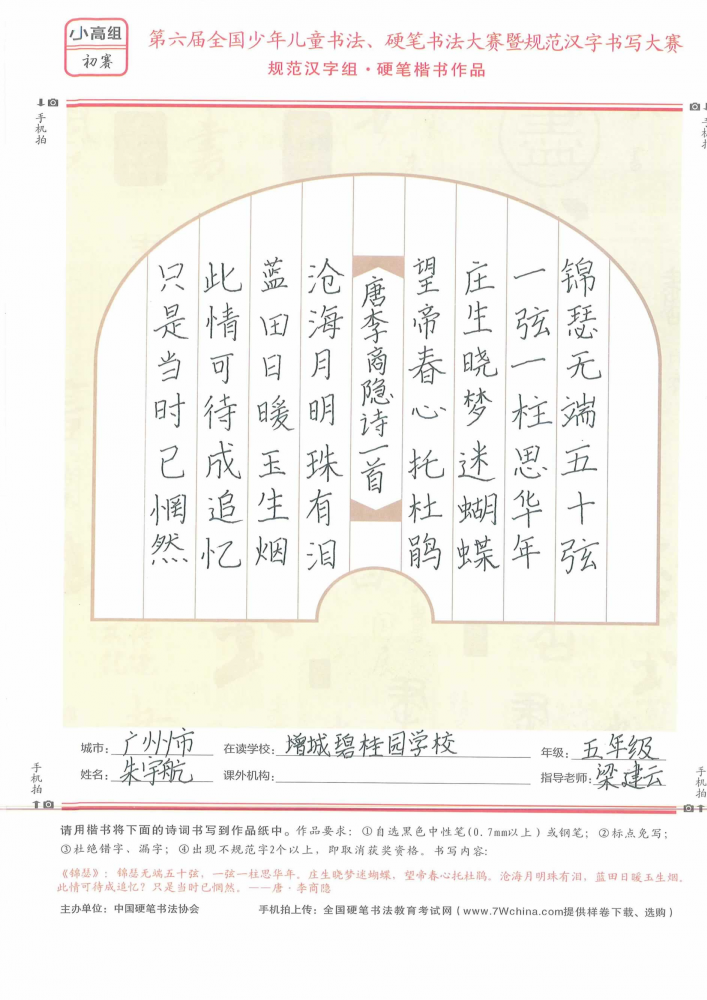 小高组
初赛
第六届全国少年儿童书法、硬笔书法大赛暨规范汉字书写大赛
规范汉字组·硬笔楷书作品
手机拍
手机拍
锦瑟无端五十弦
一弦一柱思华年
庄生晓梦迷蝴蝶
望帝春心托杜鹃
唐李商隐诗一首
沧海月明珠有泪
蓝田日暖玉生烟
此情可待成追忆
只是当时已惘然
城市：广州市 在读学校：增城碧桂园学校 年级：五年级
姓名：朱宇航 课外机构： 指导老师：梁建云
手机拍
手机拍
请用楷书将下面的诗词书写到作品纸中。作品要求：①自选黑色中性笔（0.7mm以上）或钢笔；②标点免写；
③杜绝错字、漏字；④出现不规范字2个以上，即取消获奖资格。书写内容：
《锦瑟》：锦瑟无端五十弦，一弦一柱思华年。庄生晓梦迷蝴蝶，望帝春心托杜鹃。沧海月明珠有泪，蓝田日暖玉生烟。
此情可待成追忆？只是当时已惘然。——唐·李商隐
主办单位：中国硬笔书法协会 手机拍上传：全国硬笔书法教育考试网（www.7Wchina.com提供样卷下载、选购）